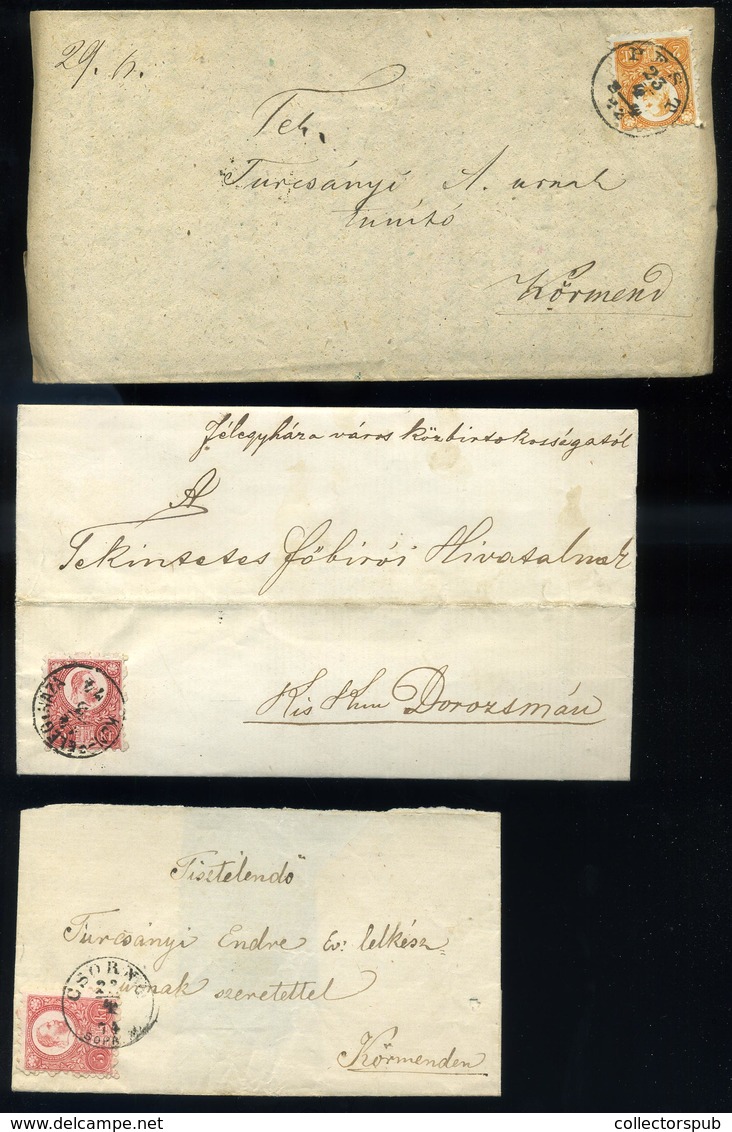 29. h.
PEST
23
Tek.
Turcsányi A. urnak
Körmend
Félegyháza város közbirtokosságától
A
Tekintetes főbirói Hivatalnak
Kis Kun Dorozsmán
FÉLEGYHÁZA
Tisztelendő
Turcsányi Endre Ev: lelkész
urnak szeretettel
Körmenden
CSORNA
74
SOPR
collectorspub